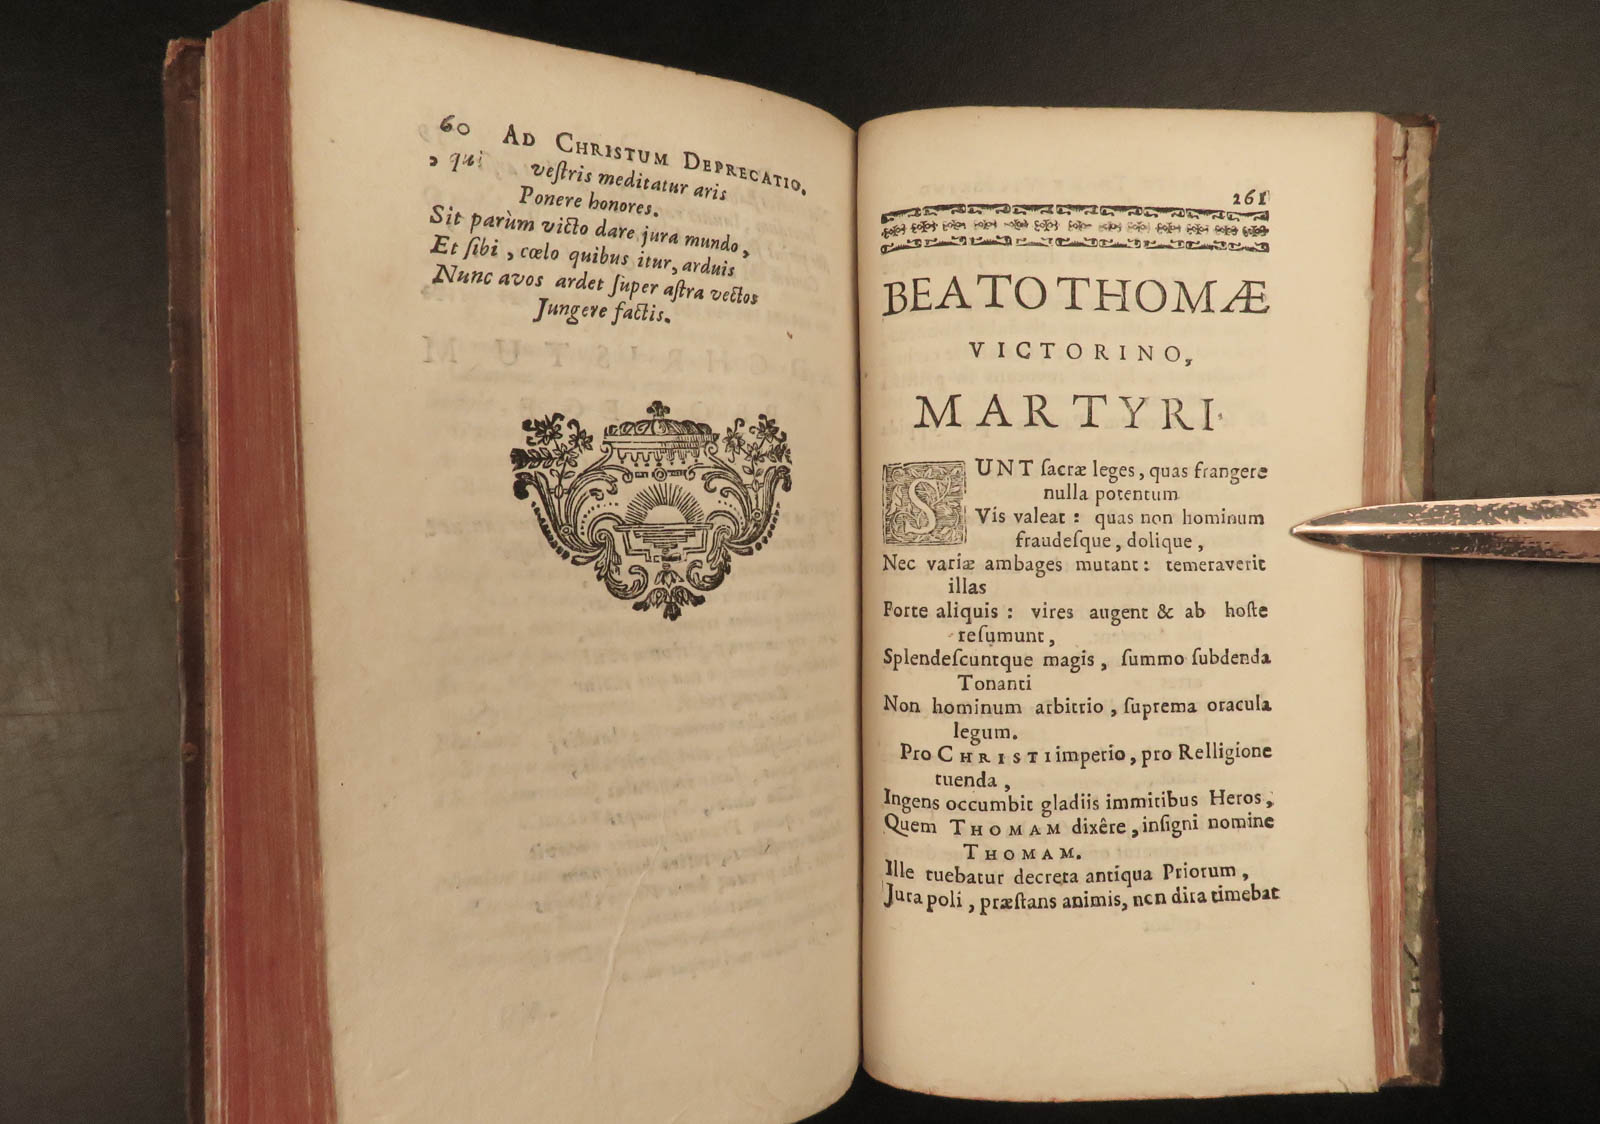 60 AD CHRISTUM DEPRECATIO.
, qui vestris meditatur aris
Ponere honores.
Sit parùm victo dare jura mundo,
Et sibi, cœlo quibus itur, arduis
Nunc avos ardet super astra vectos
Jungere factis.
261
BEATO THOMÆ
VICTORINO,
MARTYRI.
SUNT sacræ leges, quas frangere
nulla potentum
Vis valeat: quas non hominum
fraudesque, dolique,
Nec variæ ambages mutant: temeraverit
illas
Forte aliquis: vires augent & ab hoste
resumunt,
Splendescuntque magis, summo subdenda
Tonanti
Non hominum arbitrio, suprema oracula
legum.
Pro CHRISTI imperio, pro Relligione
tuenda,
Ingens occumbit gladiis immitibus Heros,
Quem THOMAM dixêre, insigni nomine
THOMAM.
Ille tuebatur decreta antiqua Priorum,
Jura poli, præstans animis, non dira timebat